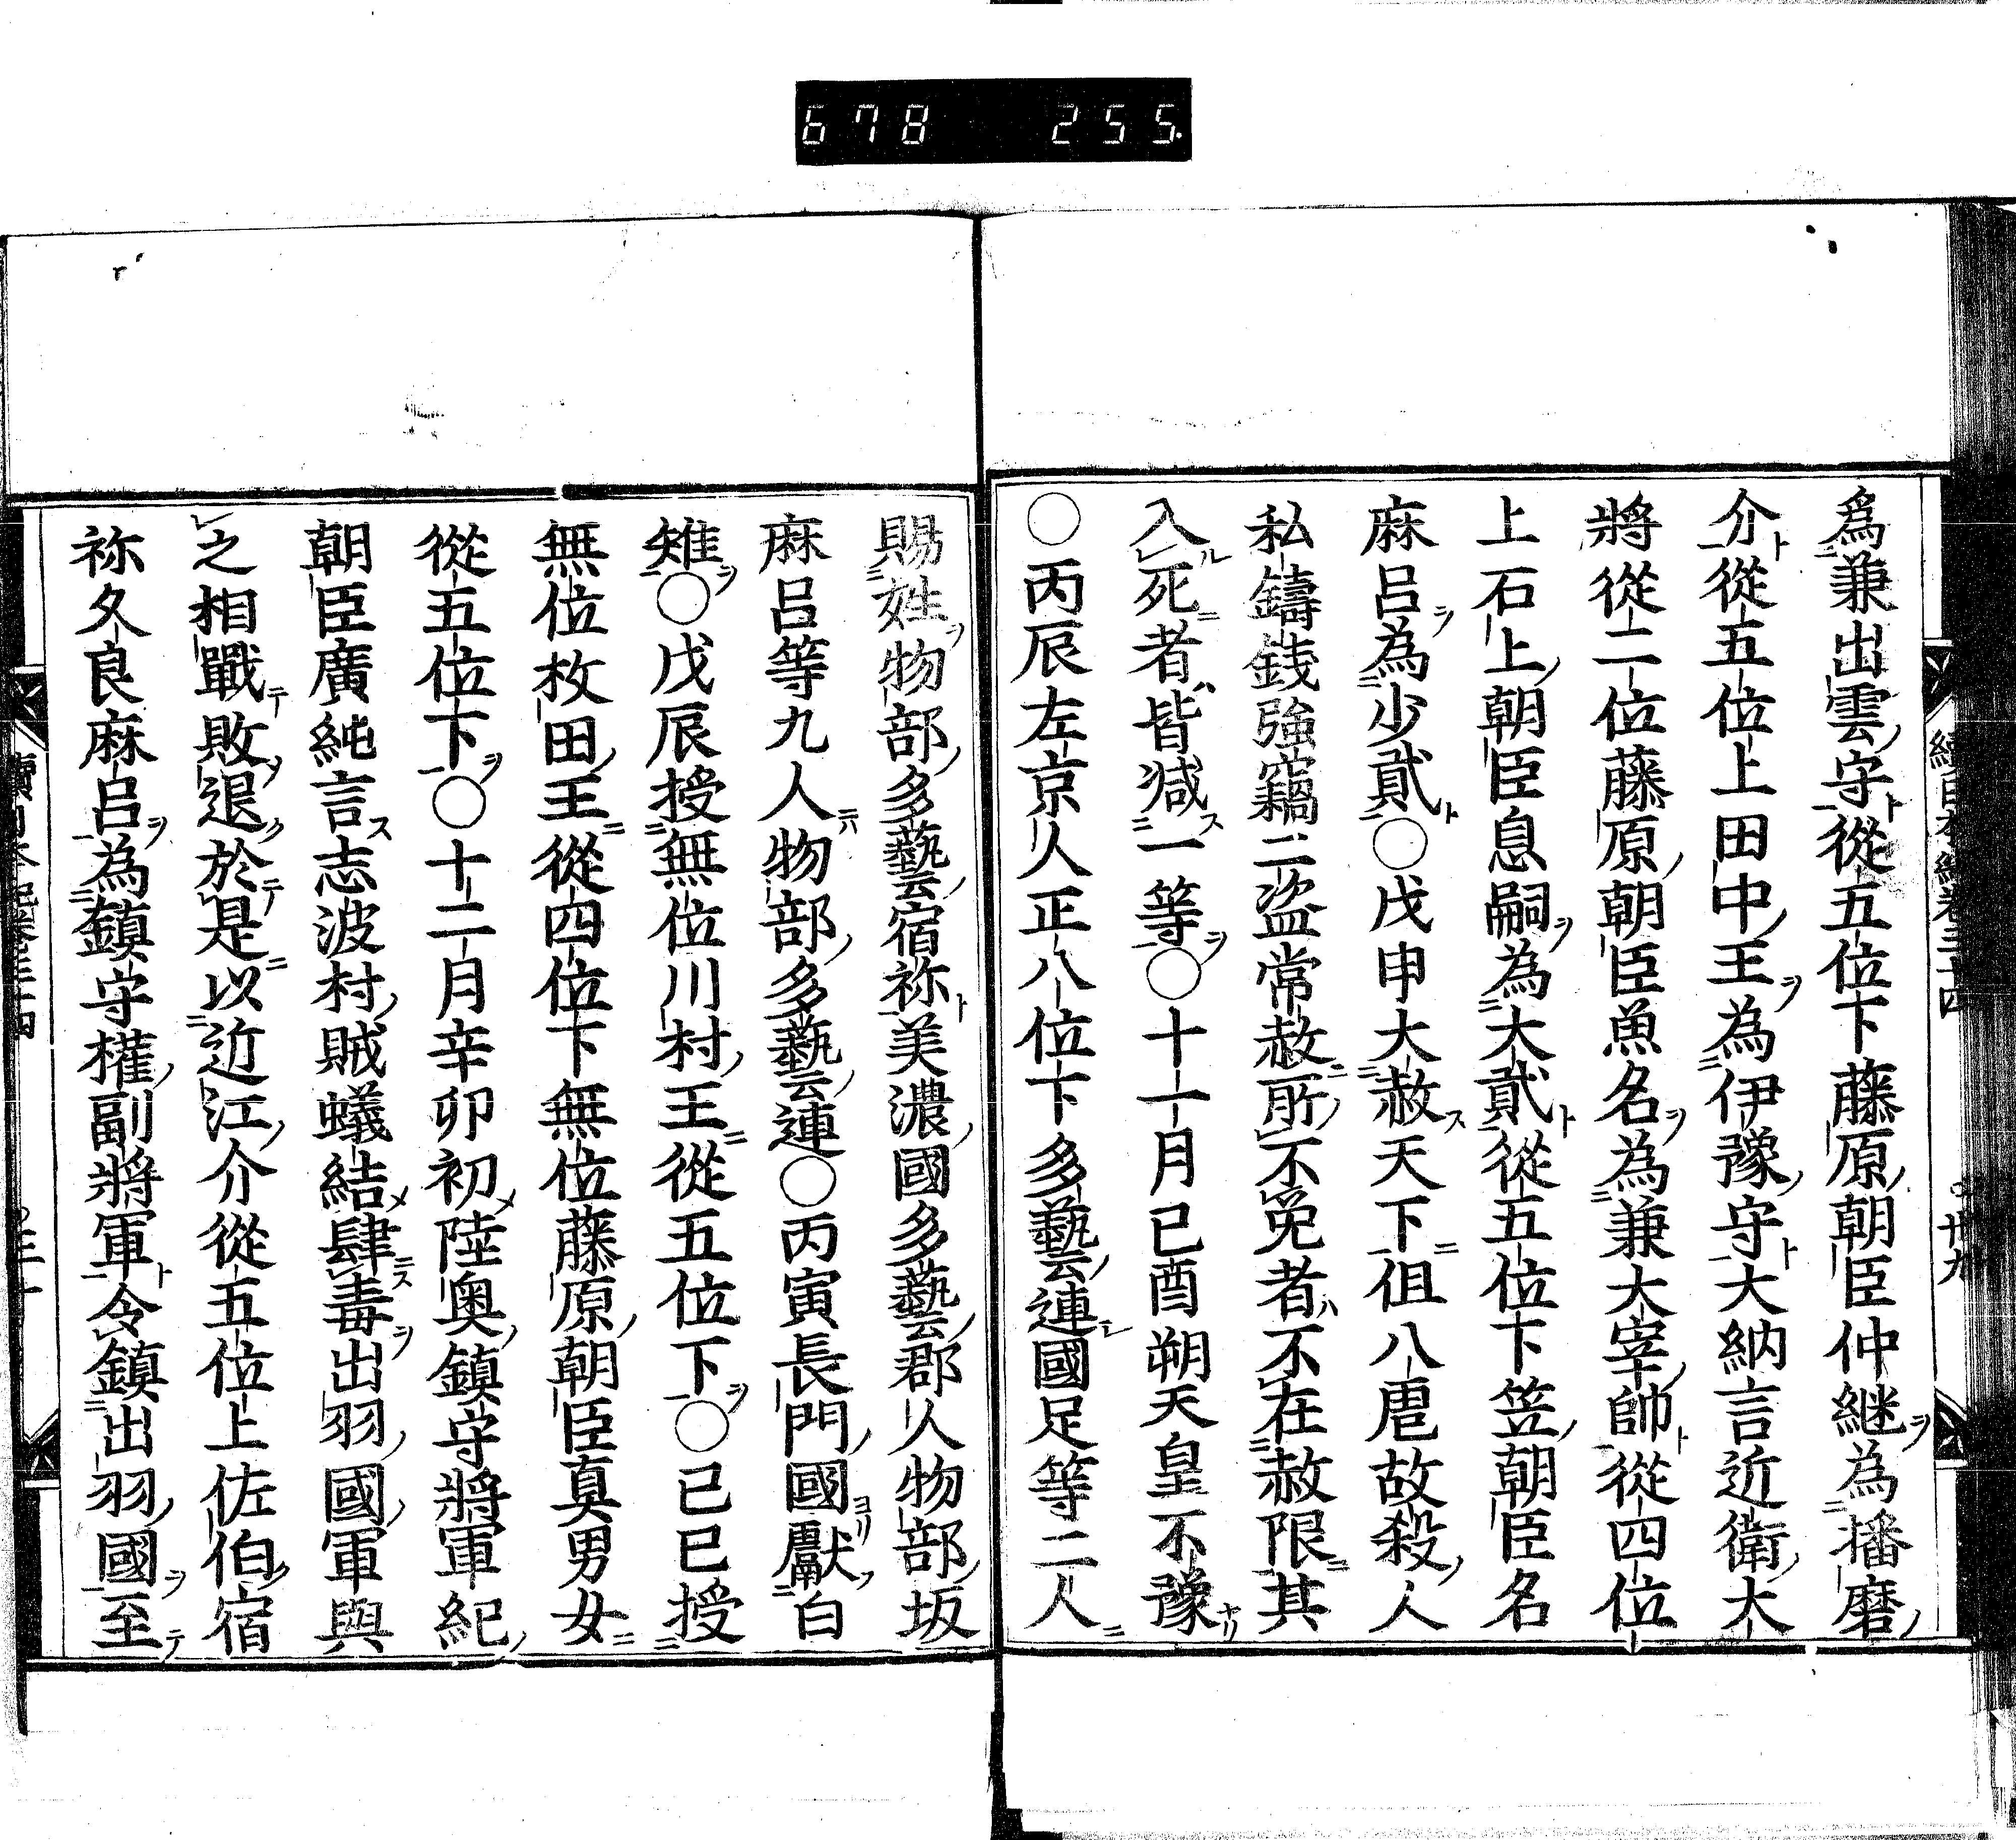 678 255.
爲兼出雲守從五位下藤原朝臣仲継為播磨
介從五位上田中王為伊豫守大納言近衛大
將從二位藤原朝臣魚名為兼大宰帥從四位
上石上朝臣息嗣為大貳從五位下笠朝臣名
麻呂為少貳〇戊申大赦天下徂八虐故殺人
私鑄錢強竊二盗常赦所不免者不在赦限其
入死者皆减一等〇十一月己酉朔天皇不豫
〇丙辰左京人正八位下多藝連國足等二人
賜姓物部多藝宿祢美濃國多藝郡人物部坂
麻呂等九人物部多藝連〇丙寅長門國獻白
雉〇戊辰授無位川村王從五位下〇己巳授
無位枚田王從四位下無位藤原朝臣真男女
從五位下〇十二月辛卯初陸奧鎮守將軍紀
朝臣廣純言志波村賊蟻結肆毒出羽國軍與
之相戰敗退於是以近江介從五位上佐伯宿
祢久良麻呂為鎮守權副將軍令鎮出羽國至